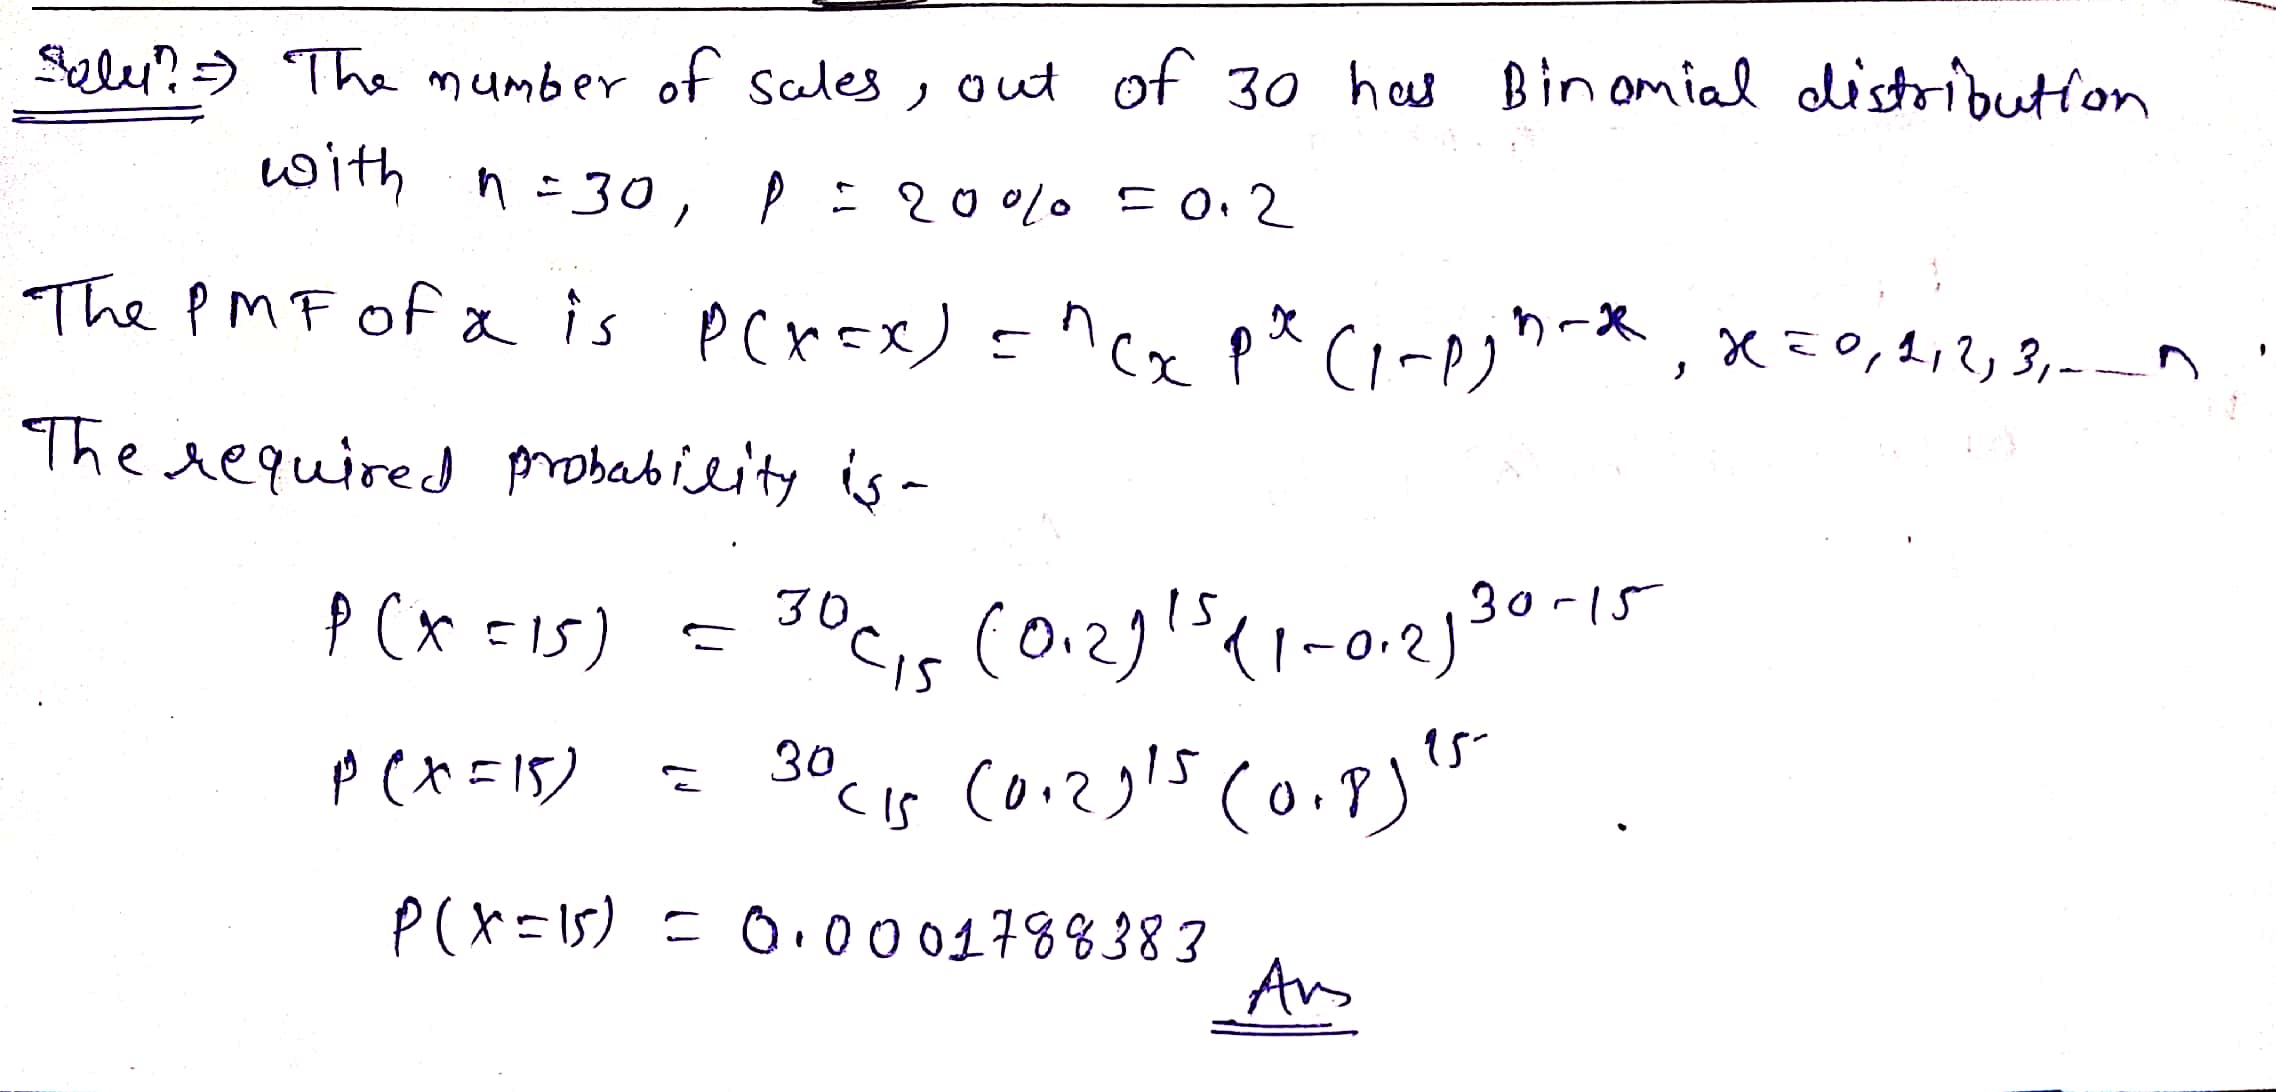 Solun ⇒ The number of sales, out of 30 has Binomial distribution
with n = 30, p = 20% = 0.2
The PMF of x is P(X=x) = ⁿCₓ pˣ (1-p)ⁿ⁻ˣ, x = 0,1,2,3,---n.
The required probability is -
P(X=15) = ³⁰C₁₅ (0.2)¹⁵ (1-0.2)³⁰⁻¹⁵
P(X=15) = ³⁰C₁₅ (0.2)¹⁵ (0.8)¹⁵.
P(X=15) = 0.0001788383
Ans